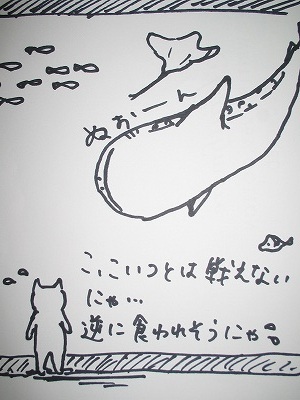 ぬぉーん
こ、こいつとは戦えない
にゃ…
逆に食われそうにゃ。